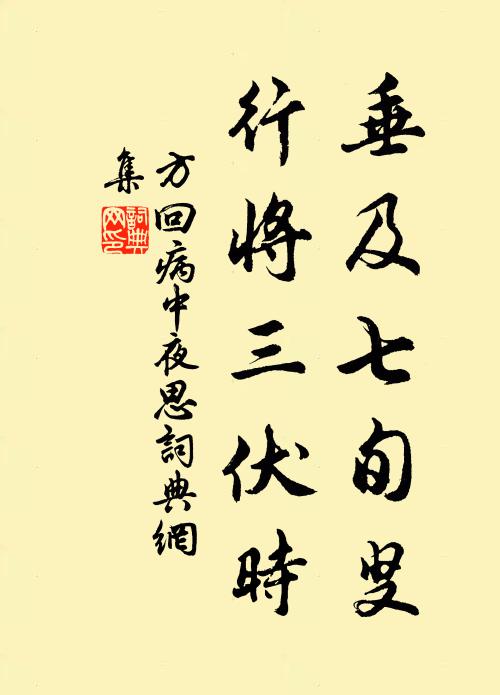 垂及七旬叟
行將三伏時
方回病中夜思詞典網
集
詞典
网印